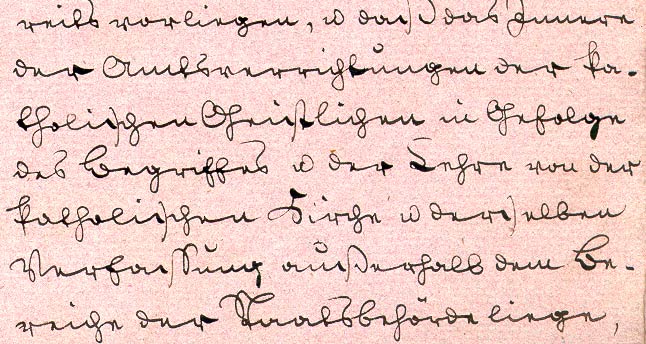 reits vorliegen, u daß das Innere
der Amtsverrichtungen der ka-
tholischen Geistlichen in Gefolge
des Begriffes u der Lehre von der
katholischen Kirche u derselben
Verfassung außerhalb dem Be-
reiche der Staatsbehörde liege,